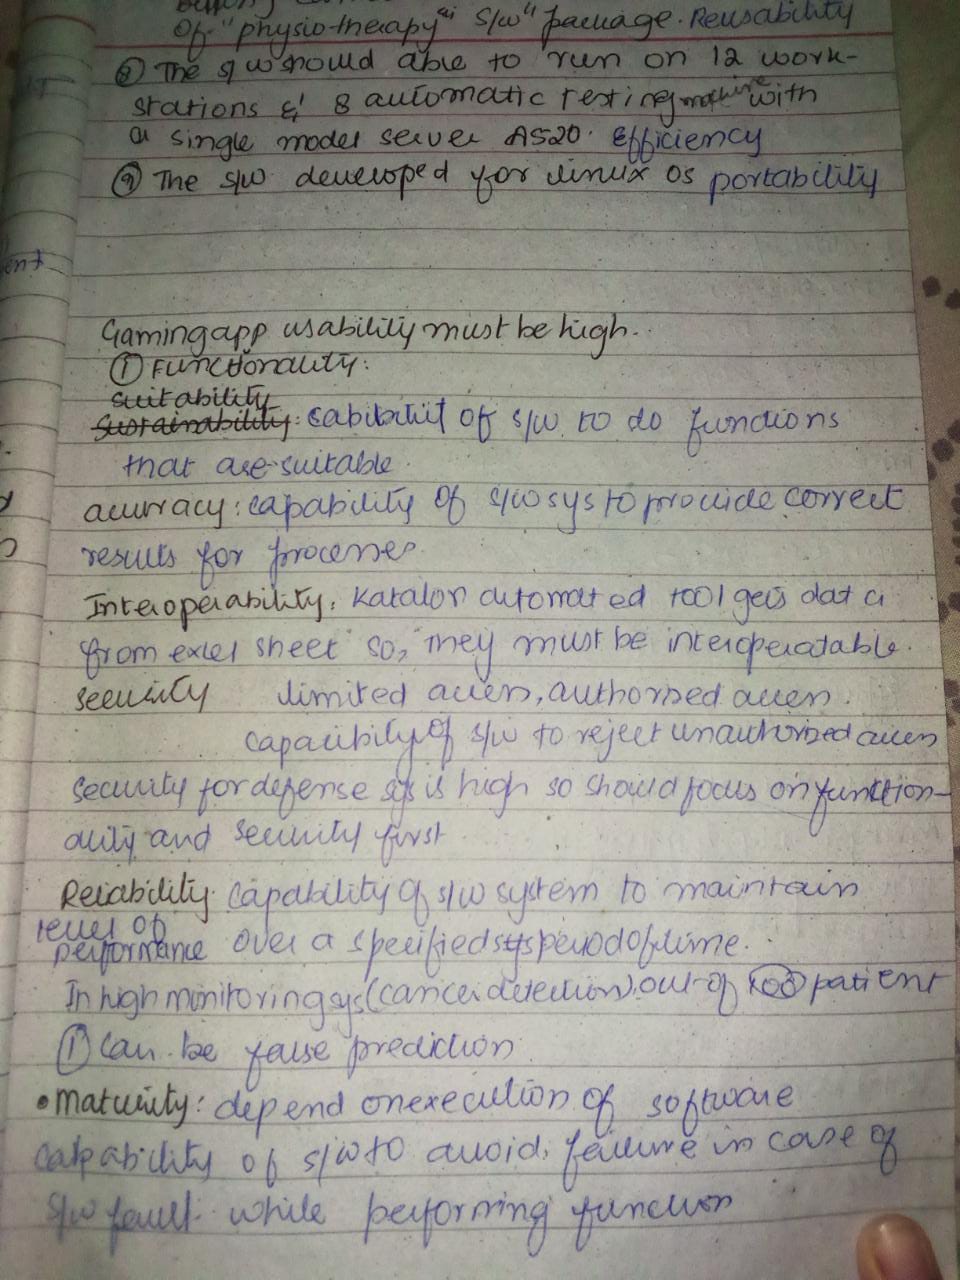 of "physio-therapy" S/w" package. Reusability
⑧ The s/w should able to run on 12 work-
stations & 8 automatic testing machine with
a single model server AS20. Efficiency
⑨ The s/w developed for linux os portability
ent
Gaming app usability must be high.
① Functionality:
suitability
Sustainability: cabibility of s/w to do functions
that are suitable.
accuracy: capability of s/w sys to provide correct
results for processes.
Interoperability: Katalon automated tool gets data
from excel sheet so, they must be interoperatable.
security limited access, authorized access.
capacibility of s/w to reject unauthorized access
Security for defense sys is high so should focus on function-
ality and security first
Reliability: capability of s/w system to maintain
level of
performance over a specified sys period of time.
In high monitoring sys (cancer detection) out of 100 patient
① can be false prediction
• Maturity: depend on execution of software
capability of s/w to avoid, failure in case of
s/w fault while performing function